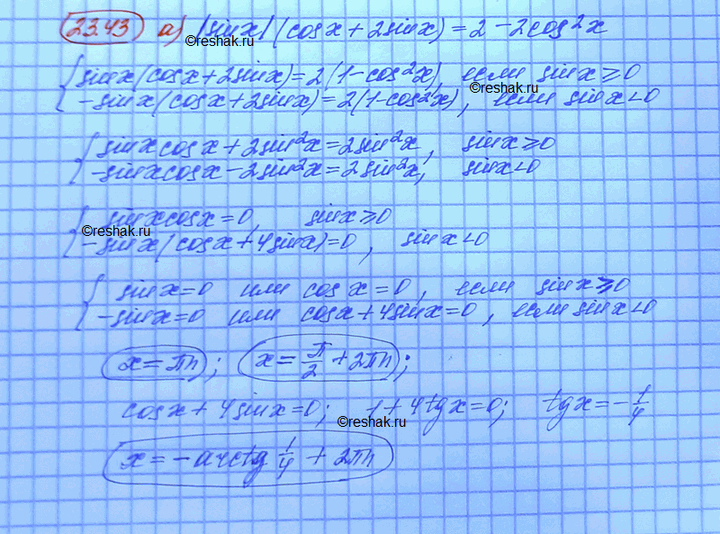 23.43 а) |sinx| (cosx + 2sinx) = 2 - 2cos²x
©reshak.ru
{ sinx(cosx + 2sinx) = 2(1-cos²x), если sinx ≥ 0
©reshak.ru
-sinx(cosx + 2sinx) = 2(1-cos²x), если sinx < 0
{ sinxcosx + 2sin²x = 2sin²x, sinx ≥ 0
-sinxcosx - 2sin²x = 2sin²x, sinx < 0
{ sinxcosx = 0, sinx ≥ 0
©reshak.ru
-sinx(cosx + 4sinx) = 0, sinx < 0
{ sinx = 0 или cosx = 0, если sinx ≥ 0
-sinx = 0 или cosx + 4sinx = 0, если sinx < 0
x = πn; x = π/2 + 2πn;
cosx + 4sinx = 0; 1 + 4tgx = 0; tgx = -1/4
©reshak.ru
x = -arctg 1/4 + 2πn